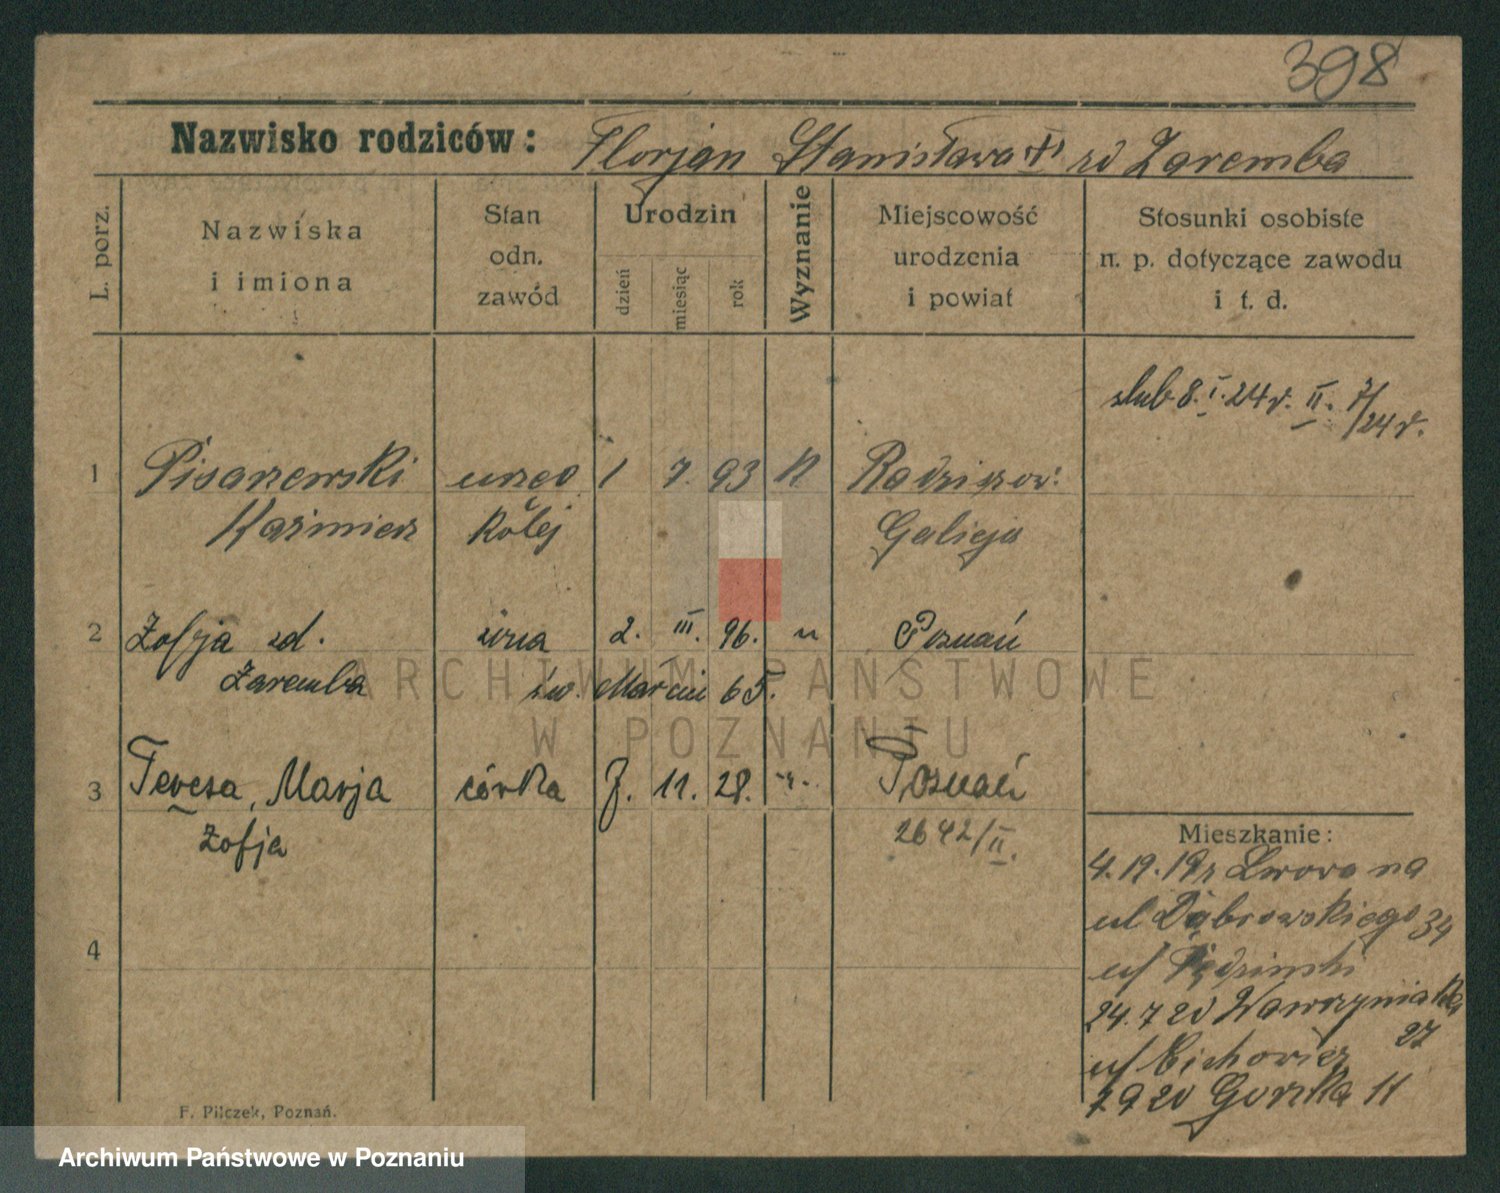 398
Nazwisko rodziców: Florjan Stanisława zd Zaremba
L. porz.
Nazwiska i imiona
Stan odn. zawód
Urodzin
dzień
miesiąc
rok
Wyznanie
Miejscowość urodzenia i powiat
Stosunki osobiste n. p. dotyczące zawodu i t. d.
ślub 8. I. 24 r. II. 7/24 r.
1 Pisarzewski 1 7. 93 Radziszow:
Kaźmierz kolej Galicja
2 Zofja zd. żona 2. III. 96. Poznań
Zaremba św. Marcin 65.
3 Teresa, Marja córka 7. 11. 28. Poznań
Zofja 2642/II.
4
Mieszkanie:
4. 19. 19r Lwowa na
ul Dąbrowskiego 34
24. 7 20 Wawrzyniaka
27
u/ Cichowicz
7 9 20 Gorska 11
F. Pilczek, Poznań.
ARCHIWUM PAŃSTWOWE
W POZNANIU
Archiwum Państwowe w Poznaniu